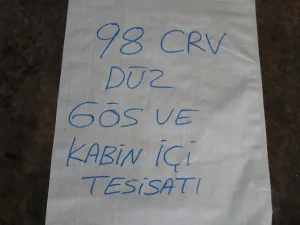 98 CRV
DÜZ
GÖS VE
KABİN İÇİ
TESİSATI